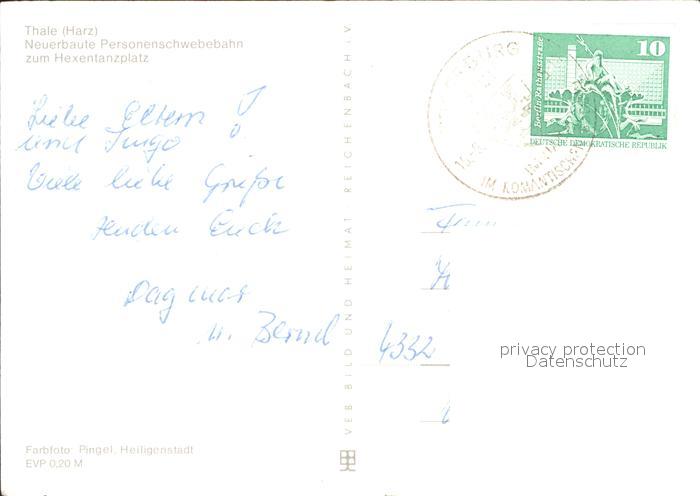 Thale (Harz)
Neuerbaute Personenschwebebahn
zum Hexentanzplatz
Liebe Eltern
und Ingo!
Viele liebe Grüße
senden Euch
Dagmar
u. Bernd
Farbfoto: Pingel, Heiligenstadt
EVP 0,20 M
VEB BILD UND HEIMAT REICHENBACH i. V.
BURG
IM ROMANTISCHEN
10
Berlin·Rathausstraße
DEUTSCHE DEMOKRATISCHE REPUBLIK
4332
privacy protection
Datenschutz